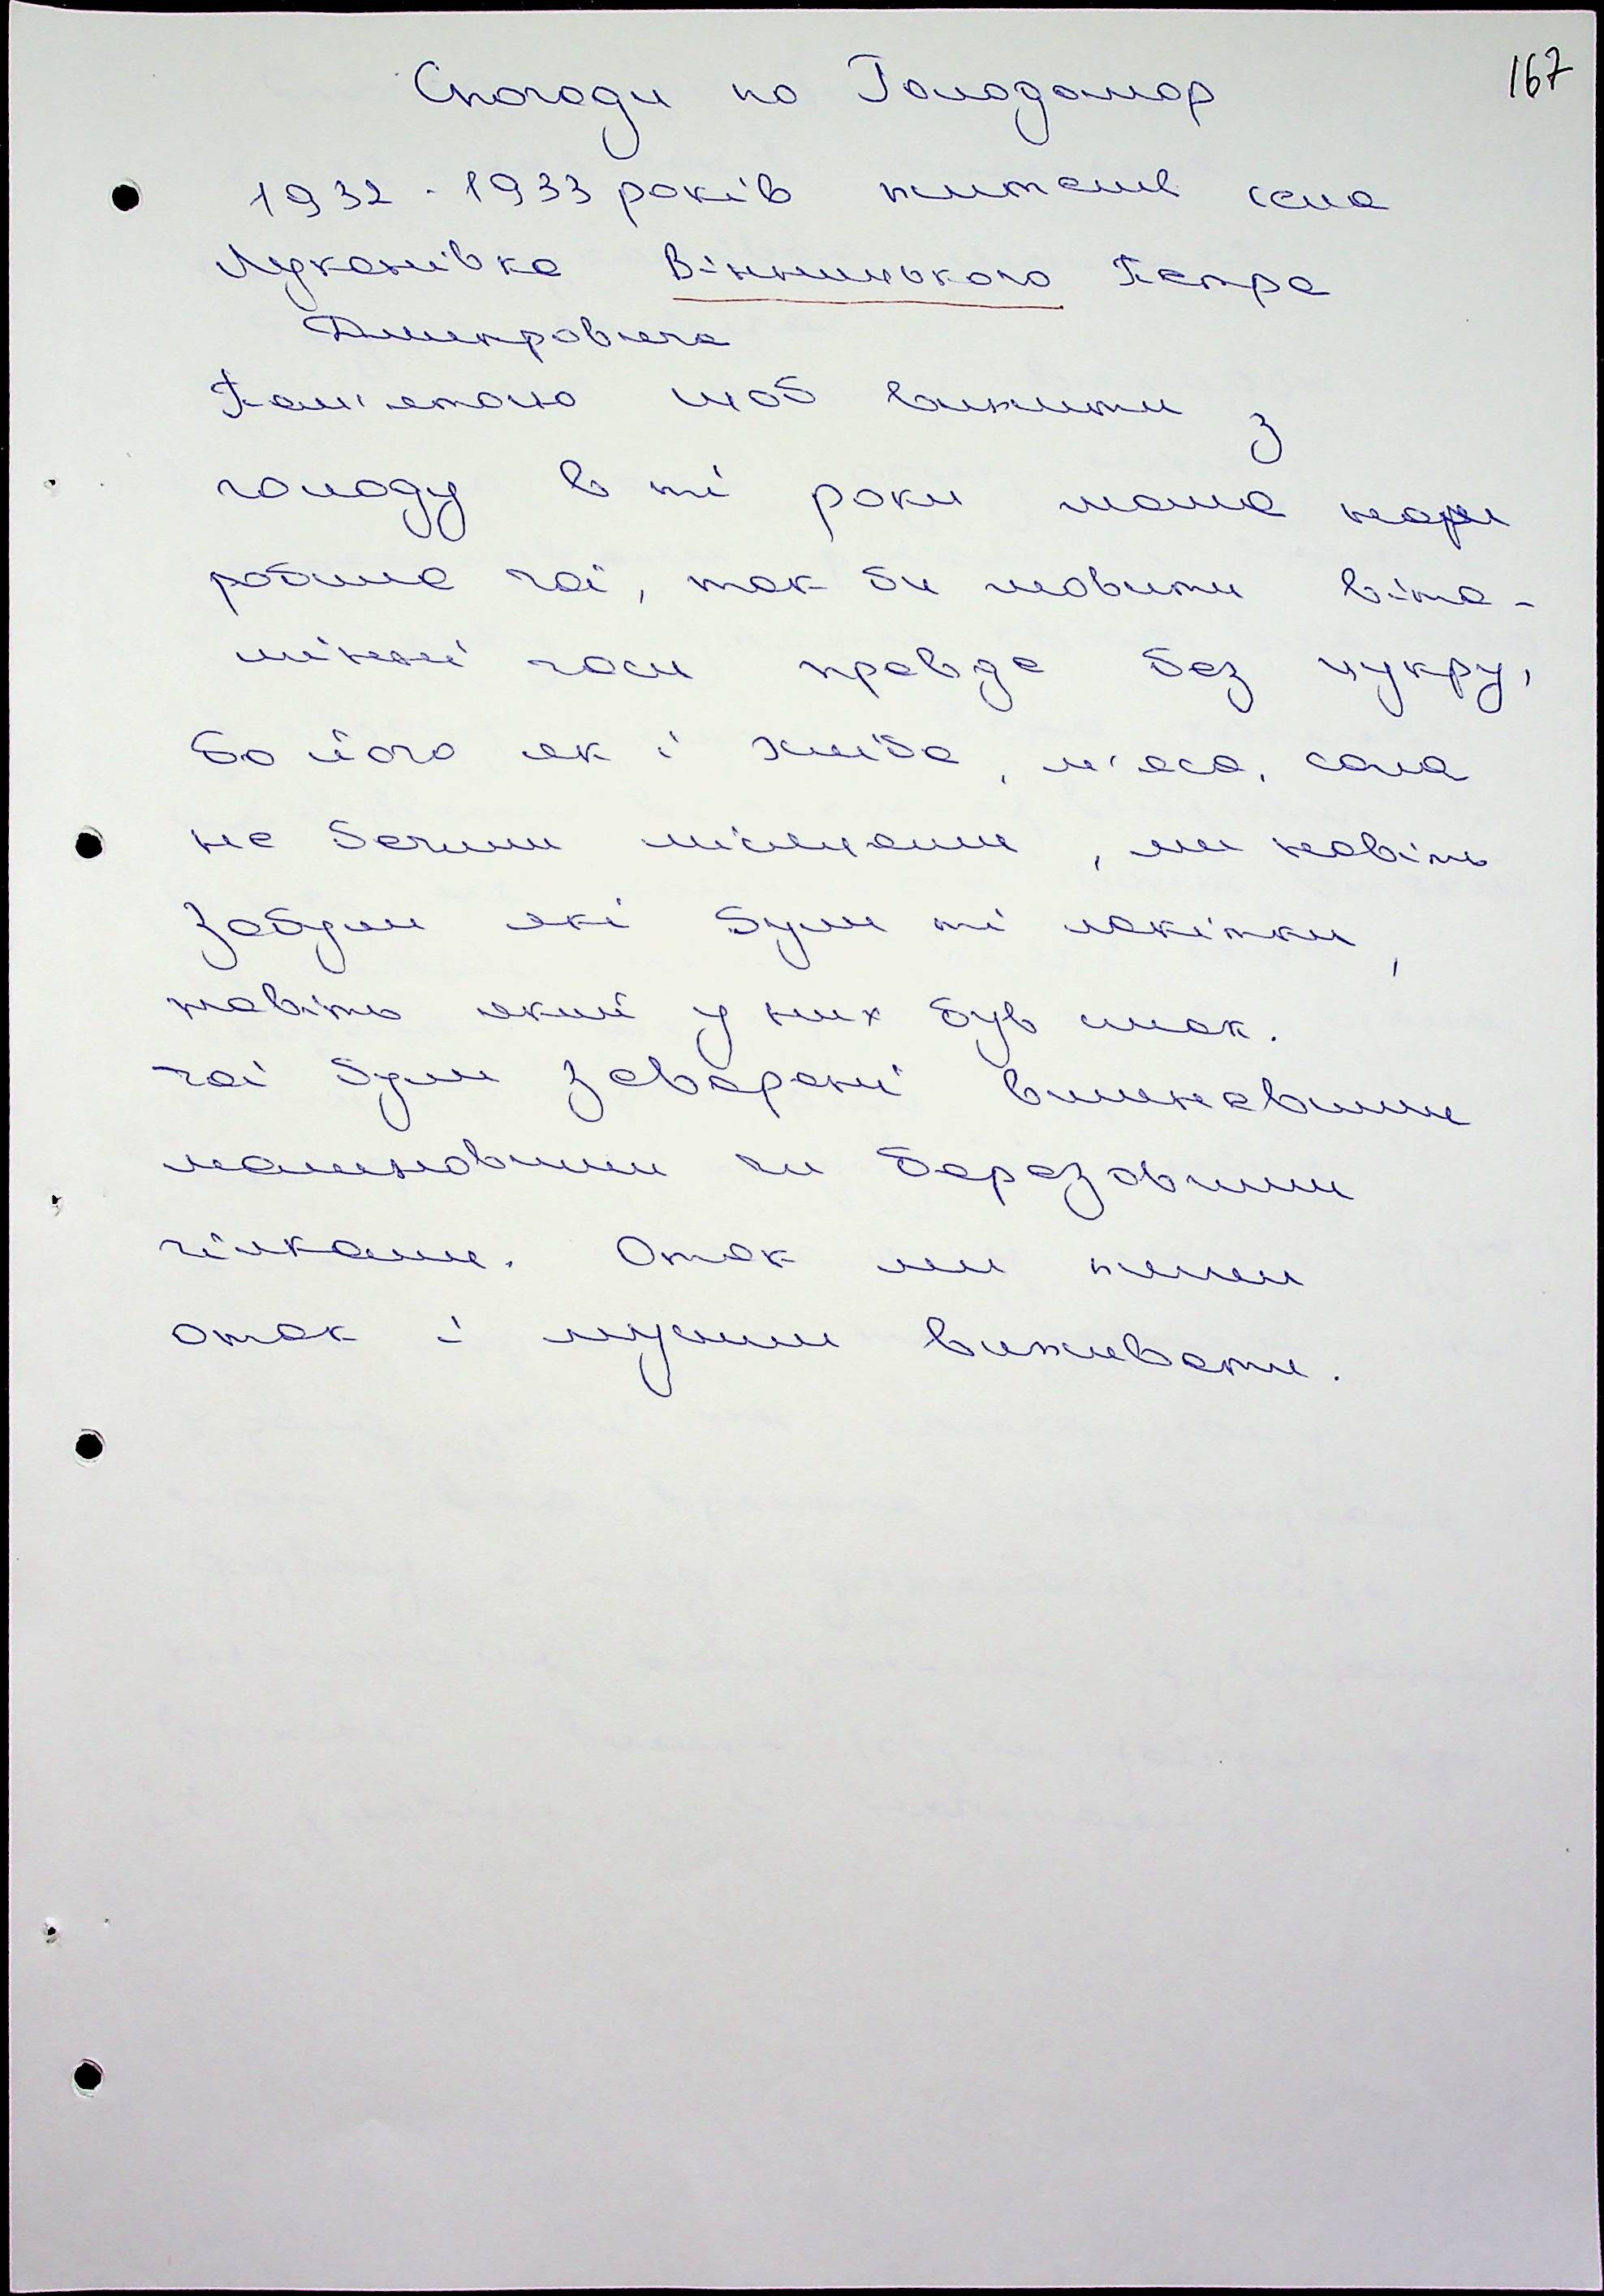 167
Спогади по Голодомор
1932-1933 років жителів села
Луканівка Вінницького Петра
Дмитровича
Пам'ятаю щоб вижити з
голоду в ті роки мама нам
робила чаї, так би мовити віта-
мінні часи правда без цукру,
бо його як і хліба, м'яса, сала
не бачили місяцями, ми навіть
забули які були ті лакітки,
навіть який у них був смак.
чаї були заварені вишневими
малиновими чи березовими
гілками. Отак ми жили
отак і мусили виживати.